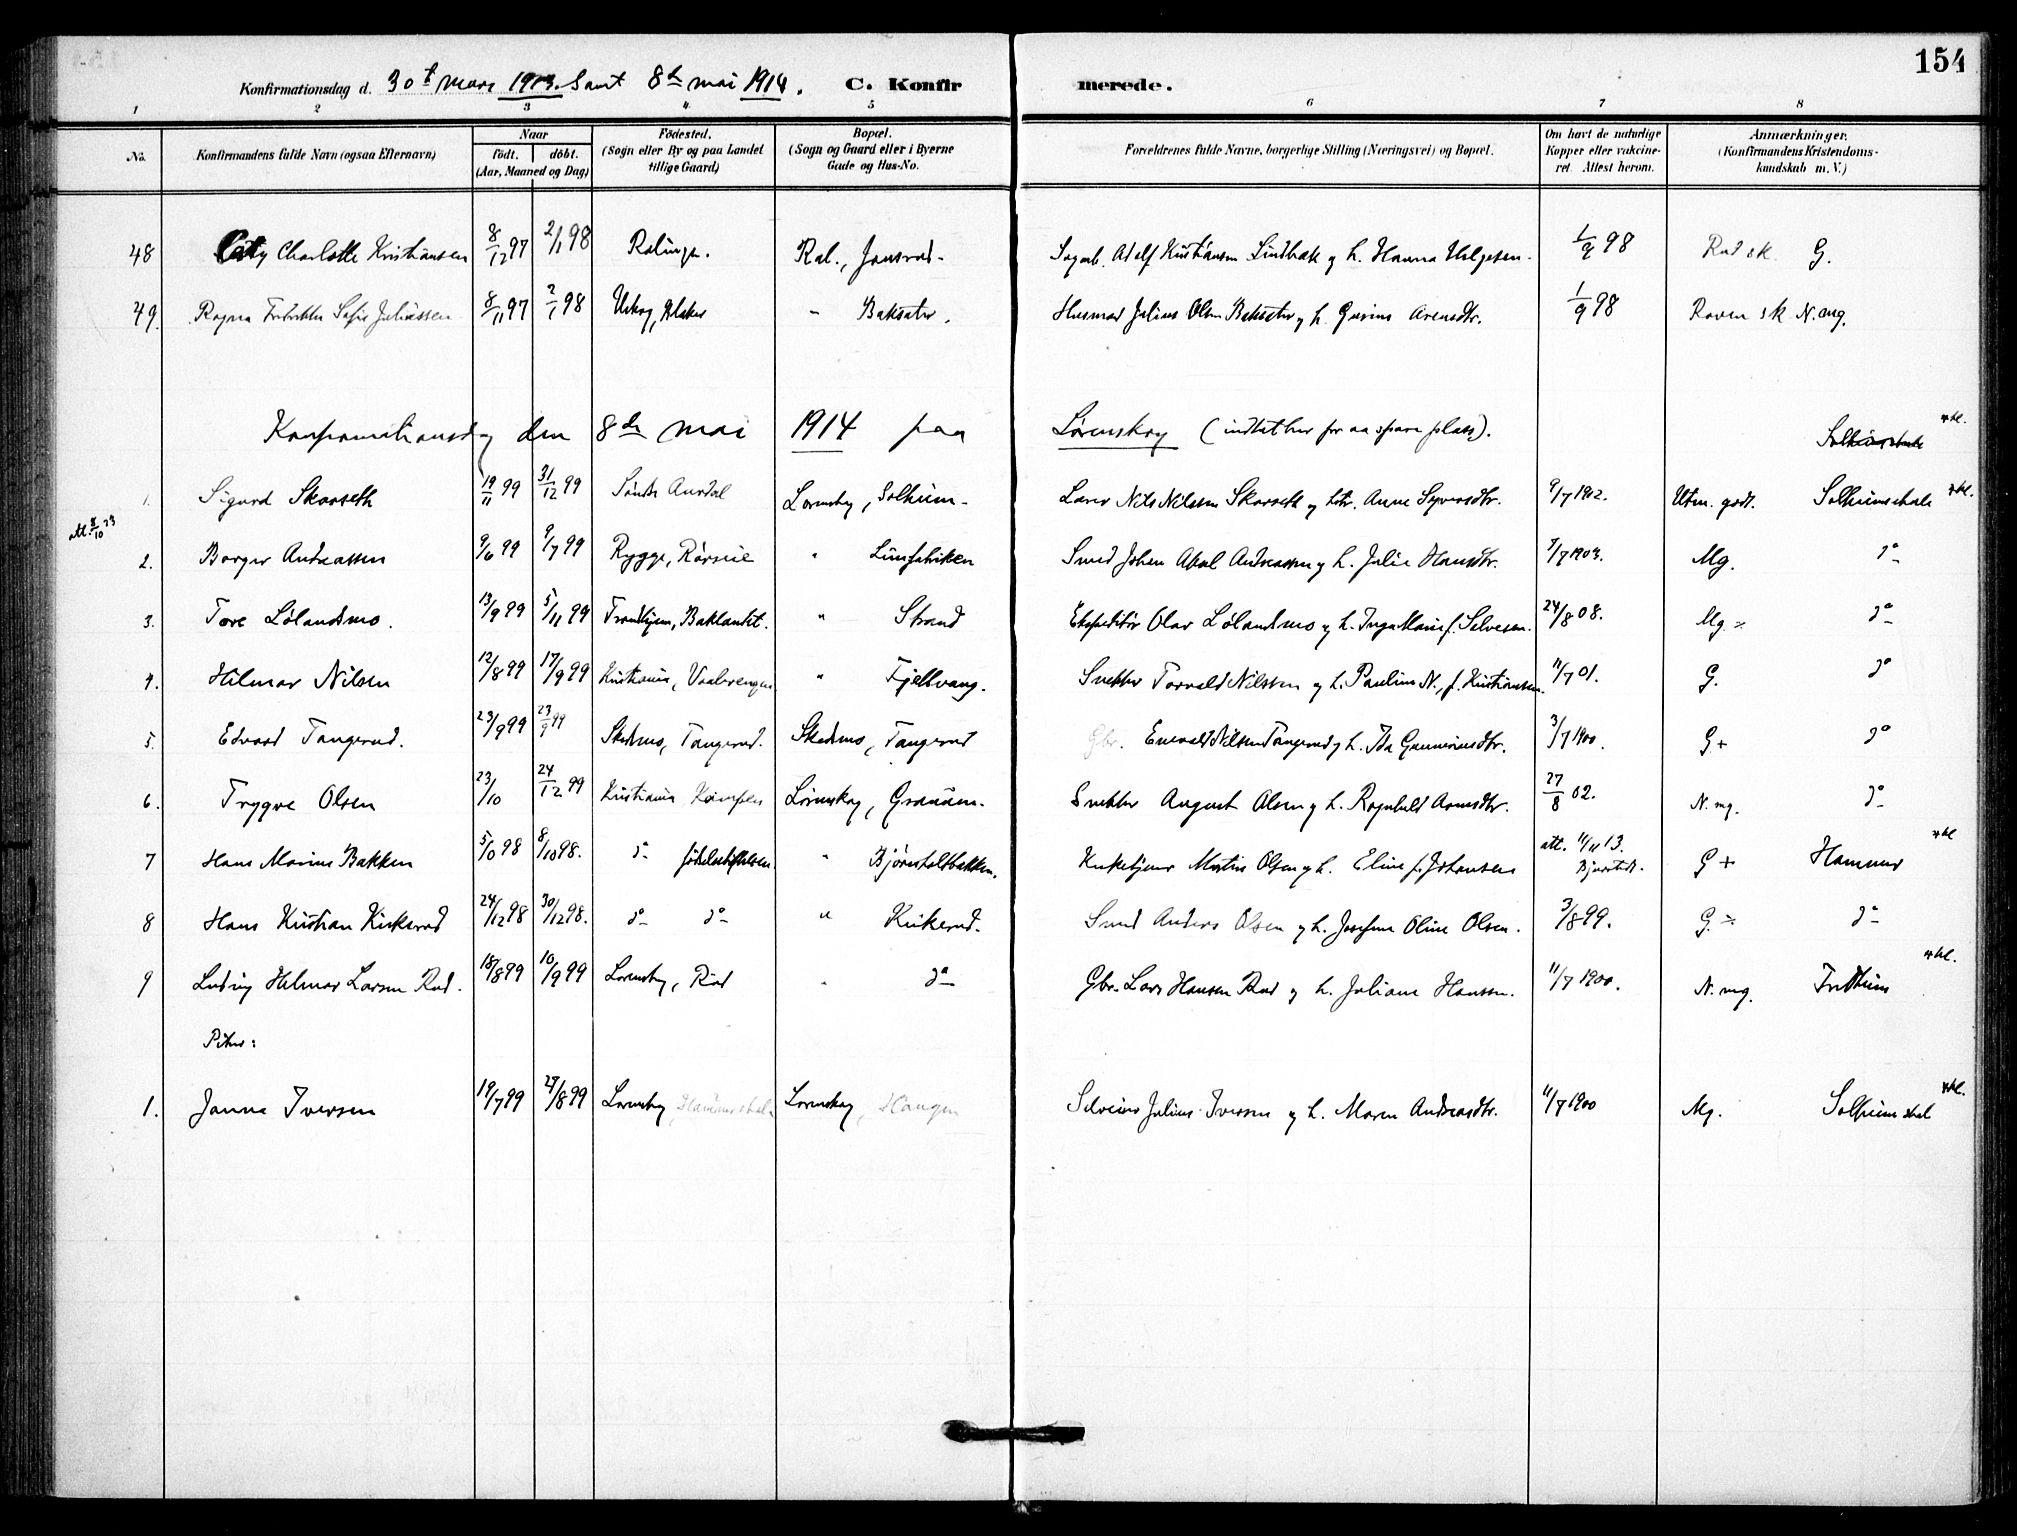 154
Konfirmationsdag d. 30t mars 1913. Samt 8de mai 1914. C. Konfirmerede.
1 2 3 4 5 6 7 8
No. Konfirmandens fulde Navn (ogsaa Efternavn) Naar födt. döbt. (Aar, Maaned og Dag) Födested. (Sogn eller By og paa Landet tillige Gaard) Bopæl. (Sogn og Gaard eller i Byerne Gade og Hus-No. Forældrenes fulde Navne, borgerlige Stilling (Næringsvei) og Bopæl. Om havt de naturlige Kopper eller vakcineret. Attest herom. Anmærkninger. (Konfirmandens Kristendomskundskab m. V.)
48 Charlotte Kristiansen 8/12 97 2/1 98 Rælingen. Ræl., Jonsrud - Adolf Kristiansen Lindbak og h. Hanna Helgesen. 1/9 98 Rud sk. G.
49. Ragna Fredrikke Sofie Juliussen 8/11 97 2/1 98 Urskog, - Baksæter. Husmand Julius Olsen Baksæter og h. Gurine Arensdtr. 1/9 98 Raven sk N. mg.
Konfirmationsdag den 8de mai 1914 paa Lørenskog (indtat her for aa spare plass).
1. Sigurd Skarseth 19/11 99 31/12 99 Søndre Aurdal Lørenskog, Solheim - Lærer Nils Nilssen Skarseth og hstr. Anne Syversdtr. 9/7 1902. Utm. godt. Solheim skole
att. 8/10 23
2. Borger Andreassen 9/6 99 9/7 99 Rygge, Rørseie " Limfabriken Smed Johan Aksel Andreassen og h. Julie Hansdtr. 7/7 1903. Mg. do
3. Tore Lølandsmo. 13/9 99 5/11 99 Trondhjem, Baklandet. " Strand Ekspeditør Olav Lølandsmo og h. Inga Marie f. Selvesen. 24/8 08. Mg. ÷ do
4. Hilmar Nilsen 12/8 99 17/9 99 Kristiania, Vaalerengen " Fjellvang. Snekker Torvald Nilssen og h. Pauline N., f. Kristiansen. 11/7 01. G. do
5. Edvard Tangerud. 23/9 99 23/9 99 Skedsmo, Tangerud. Skedsmo, Tangerud Gbr. Enevald Nilsen Tangerud og h. Ida Gunneriusdtr. 3/7 1900. G+ do
6. Trygve Olsen 23/10 24/12 99 Kristiania Kampen Lørenskog, Granaasen. Snekker August Olsen og h. Ragnhild Arnesdtr. 27/8 02. N. mg. do
7 Hans Marius Bakken 5/0 98 8/10 98. do fødselsstiftelsen. " Bjørnholtbakken. Kirketjener Martin Olsen og h. Eline f. Johansen att. 11/11 13. G + Hammer
8 Hans Kristian Kirkerud 24/12 98 30/12 98. do do " Kirkerud. Smed Anders Olsen og h. Josefine Oline Olsen. 3/8 99. G. ÷ do
9 Ludvig Helmer Larsen Rud. 18/8 99 10/9 99 Lørenskog, Rud " do Gbr. Lars Hansen Rud og h. Juliane Hanssen. 11/7 1900. N. mg. Fredheim
Piker:
1. Janna Iversen 19/7 99 27/8 99 Lørenskog, Lørenskog, Haugen Selveier Julius Iversen og h. Maren Andreasdtr. 11/7 1900 Mg. Solheim skol